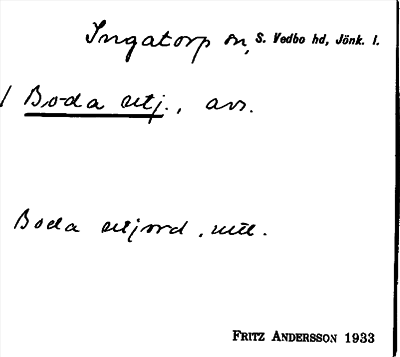 Ingatorp sn, S. Vedbo hd, Jönk. l.
/ Boda utj., avs.
Boda utjord, utt.
FRITZ ANDERSSON 1933